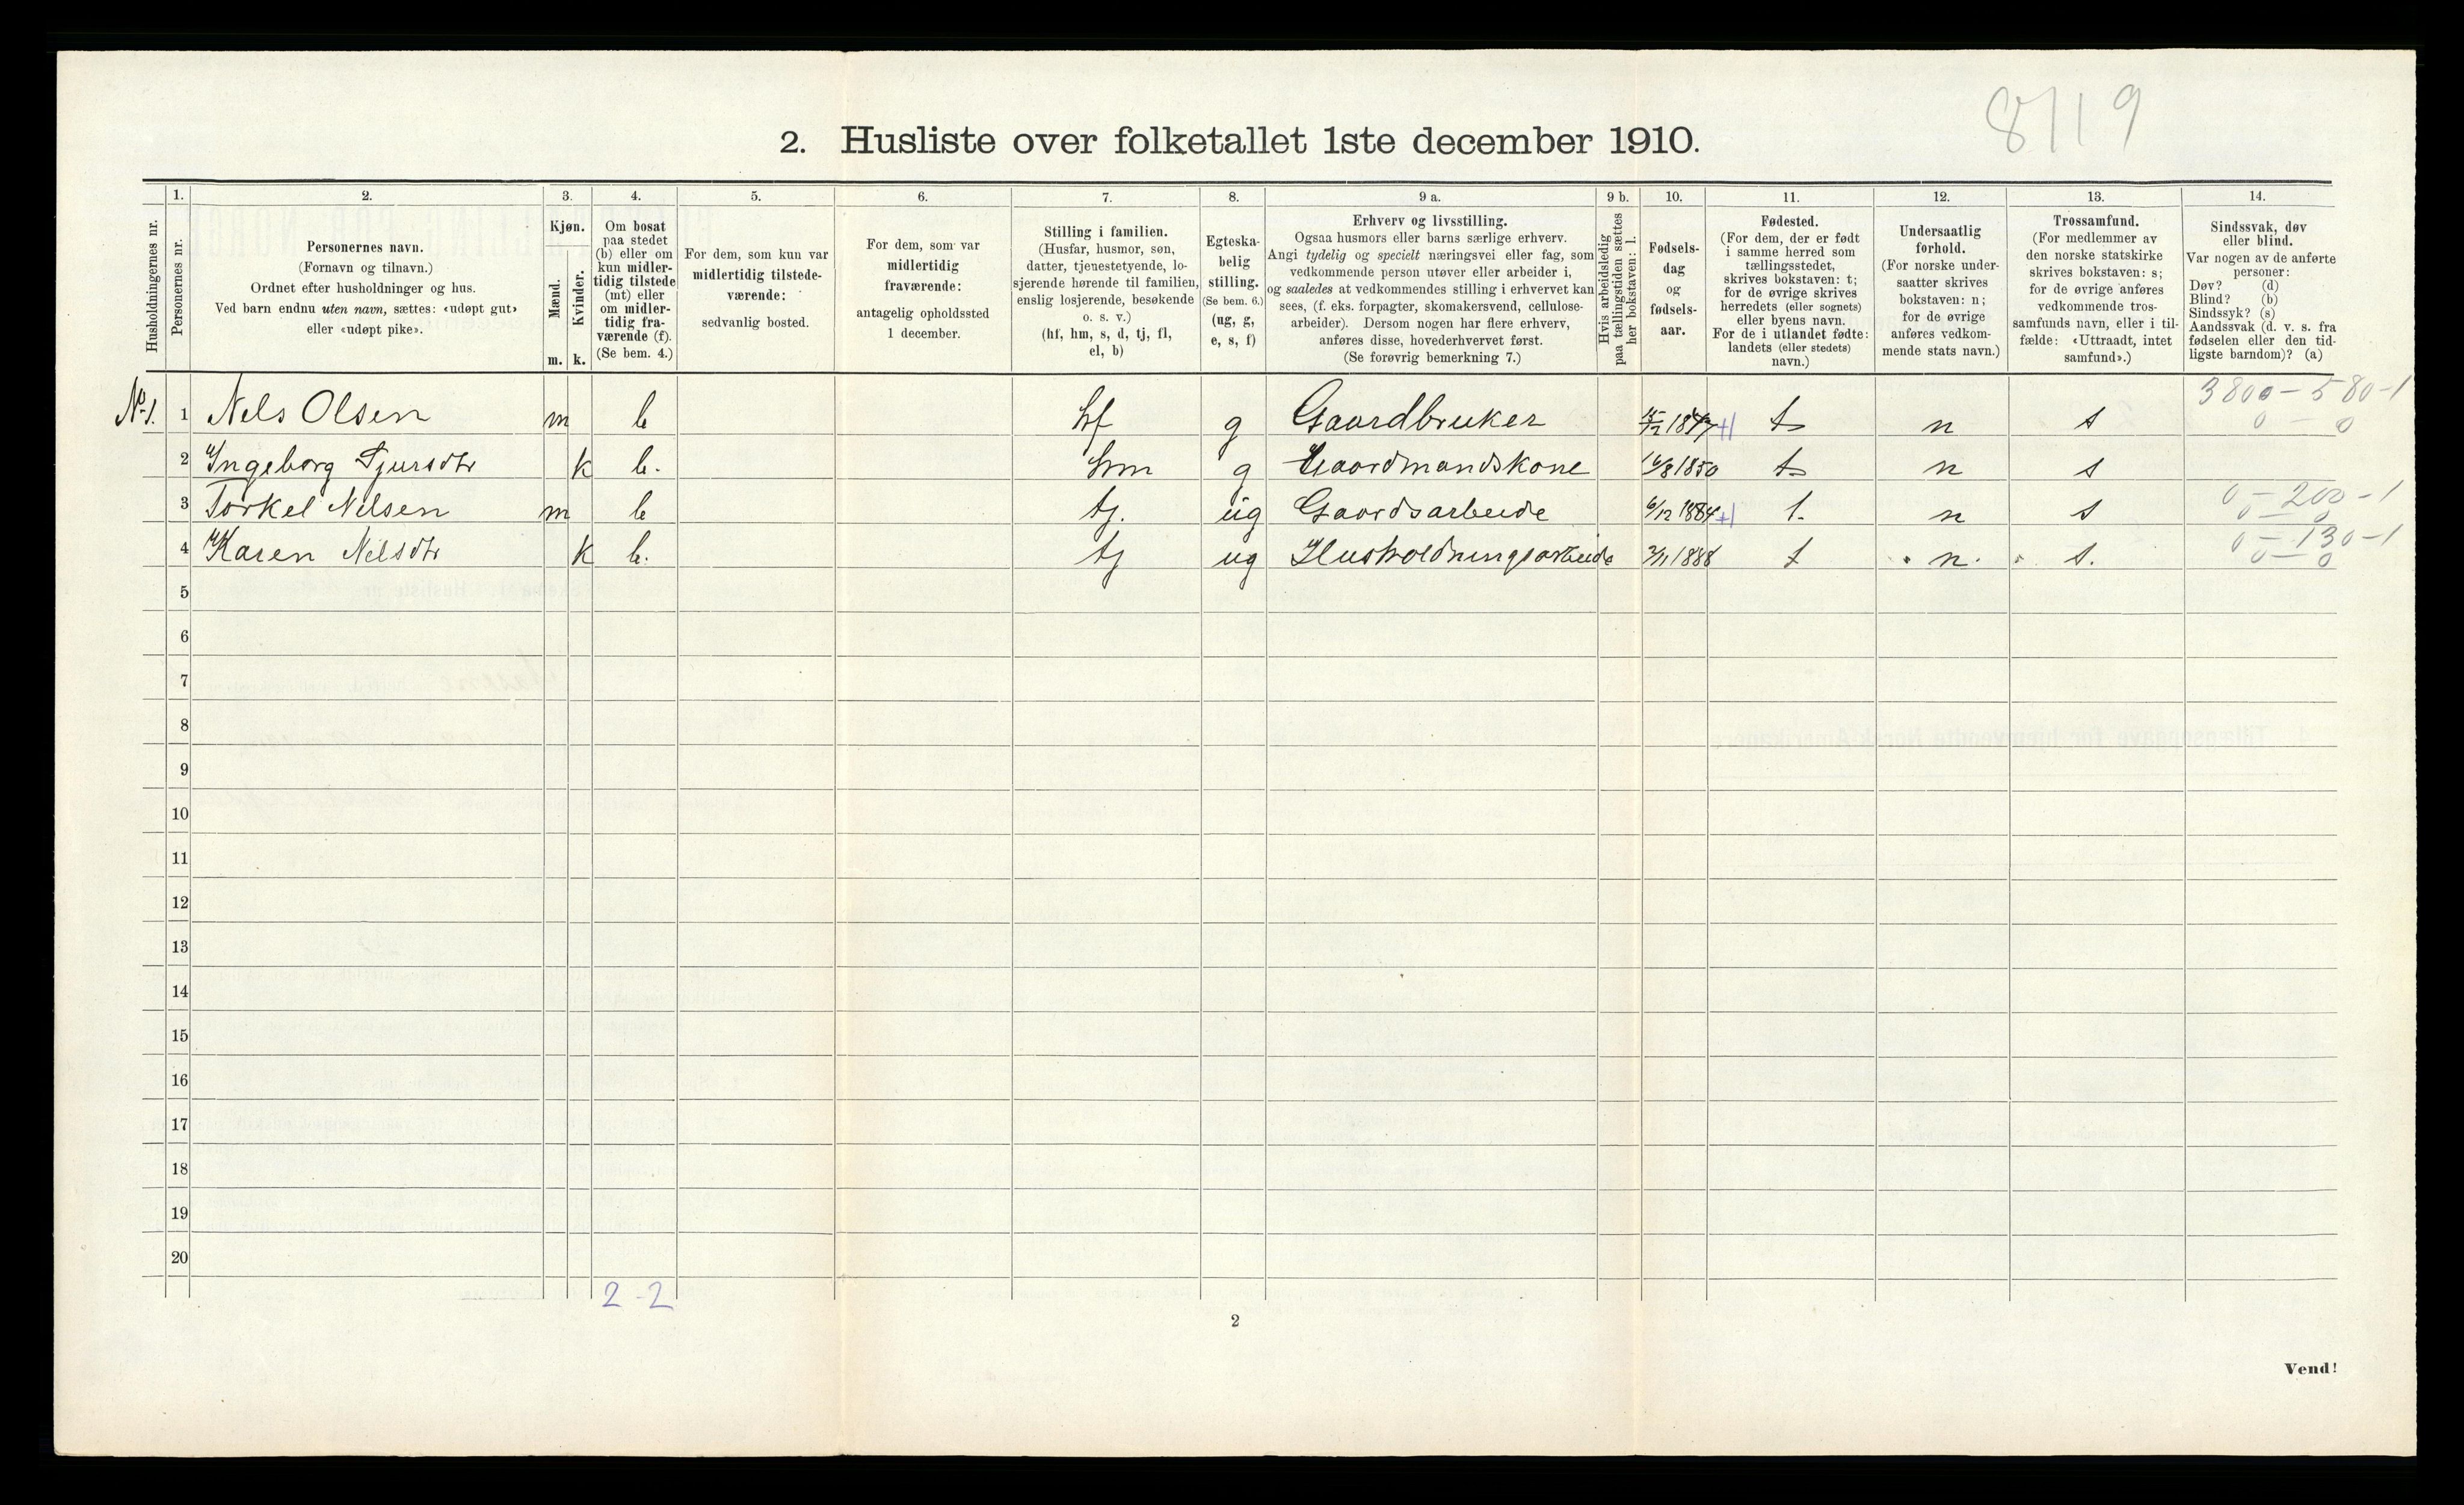 8719
2. Husliste over folketallet 1ste december 1910.
Husholdningernes nr.
1. Personernes nr.
2. Personernes navn. (Fornavn og tilnavn.) Ordnet efter husholdninger og hus. Ved barn endnu uten navn, sættes: «udøpt gut» eller «udøpt pike».
3. Kjøn. Mænd. m. Kvinder. k.
4. Om bosat paa stedet (b) eller om kun midlertidig tilstede (mt) eller om midlertidig fraværende (f). (Se bem. 4.)
5. For dem, som kun var midlertidig tilstedeværende: sedvanlig bosted.
6. For dem, som var midlertidig fraværende: antagelig opholdssted 1 december.
7. Stilling i familien. (Husfar, husmor, søn, datter, tjenestetyende, losjerende hørende til familien, enslig losjerende, besøkende o. s. v.) (hf, hm, s, d, tj, fl, el, b)
8. Egteskabelig stilling. (Se bem. 6.) (ug, g, e, s, f)
9 a. Erhverv og livsstilling. Ogsaa husmors eller barns særlige erhverv. Angi tydelig og specielt næringsvei eller fag, som vedkommende person utøver eller arbeider i, og saaledes at vedkommendes stilling i erhvervet kan sees, (f. eks. forpagter, skomakersvend, cellulosearbeider). Dersom nogen har flere erhverv, anføres disse, hovederhvervet først. (Se forøvrig bemerkning 7.)
9 b. Hvis arbeidsledig paa tællingstiden sættes her bokstaven: l.
10. Fødselsdag og fødselsaar.
11. Fødested. (For dem, der er født i samme herred som tællingsstedet, skrives bokstaven: t; for de øvrige skrives herredets (eller sognets) eller byens navn. For de i utlandet fødte: landets (eller stedets) navn.)
12. Undersaatlig forhold. (For norske undersaatter skrives bokstaven: n; for de øvrige anføres vedkommende stats navn.)
13. Trossamfund. (For medlemmer av den norske statskirke skrives bokstaven: s; for de øvrige anføres vedkommende trossamfunds navn, eller i tilfælde: «Uttraadt, intet samfund».)
14. Sindssvak, døv eller blind. Var nogen av de anførte personer: Døv? (d) Blind? (b) Sindssyk? (s) Aandssvak (d. v. s. fra fødselen eller den tidligste barndom)? (a)
3800 - 580 - 1
No 1. 1 Nels Olsen m b hf g Gaardbruker 15/12 1847 t n s 0 - 0
2 Ingeborg Sjursdtr k b. hm g Gaardmandskone 16/8 1850 t n s
0 - 200 - 1
3 Torkel Nelsen m b tj. ug Gaardsarbeide 6/12 1884 t. n s 0 - 0
0 - 130 - 1
4 Karen Nelsdtr k b. tj ug Husholdningsarbeide 3/11 1888 t n. s. 0 - 0
5
6
7
8
9
10
11
12
13
14
15
16
17
18
19
20
2 - 2
2
Vend!